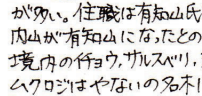 が多い。住職は有知山氏
内山が有知山になったとの
境内のイチョウ,サルスベリ,
ムクロジはやないの名木